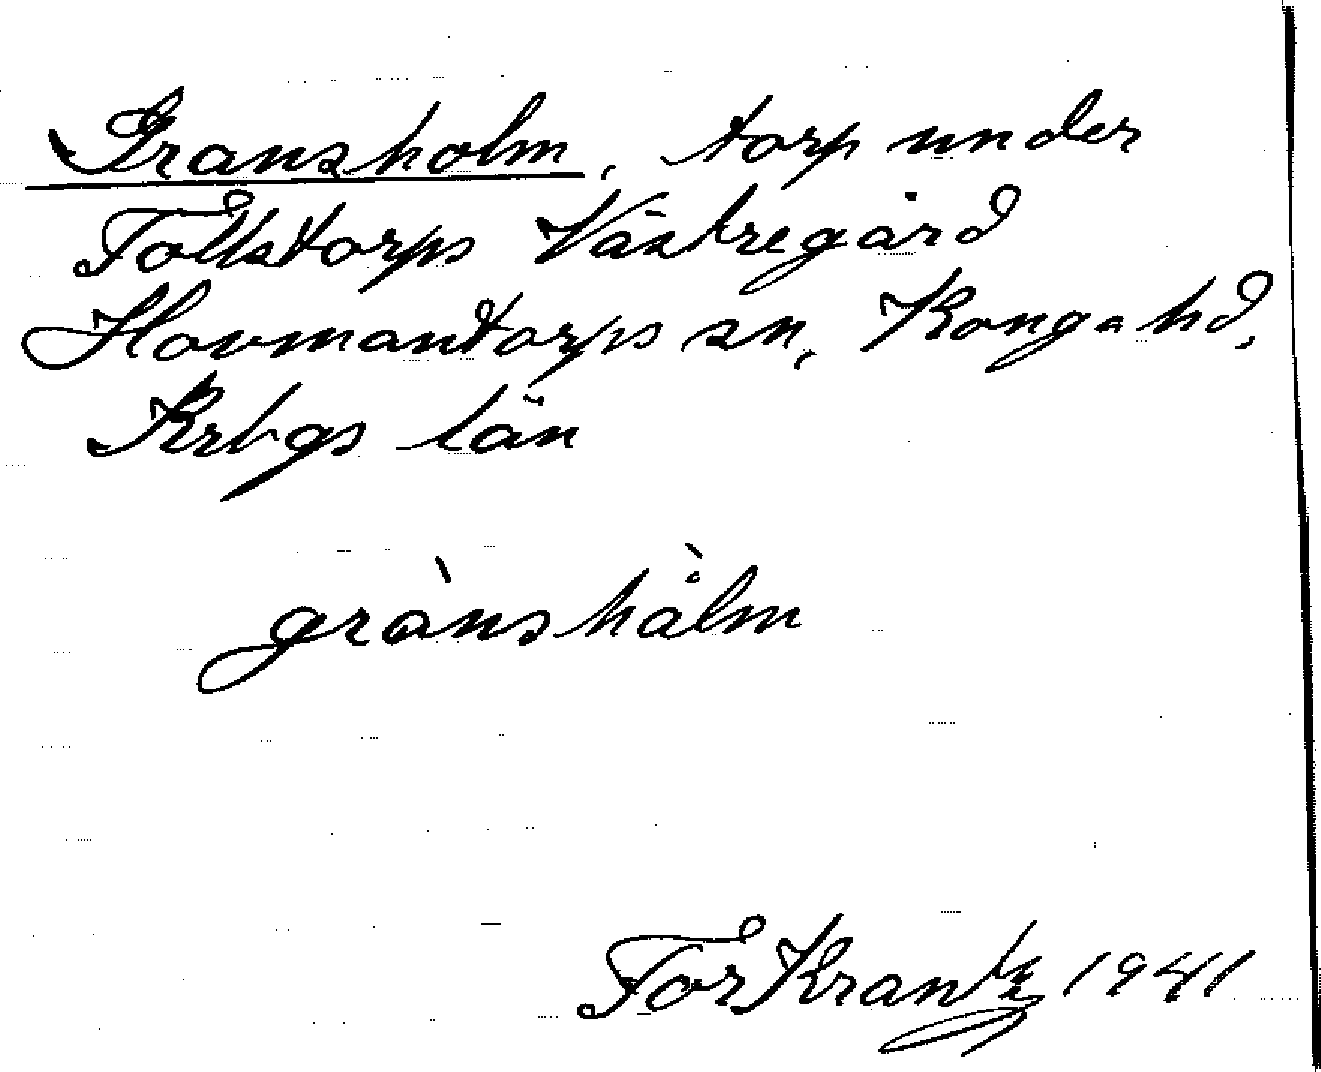 Gransholm, torp under
Tollstorps Västregård
Hovmantorps sn, Konga hd,
Krbgs län
grànshålm
Tor Krantz 1941